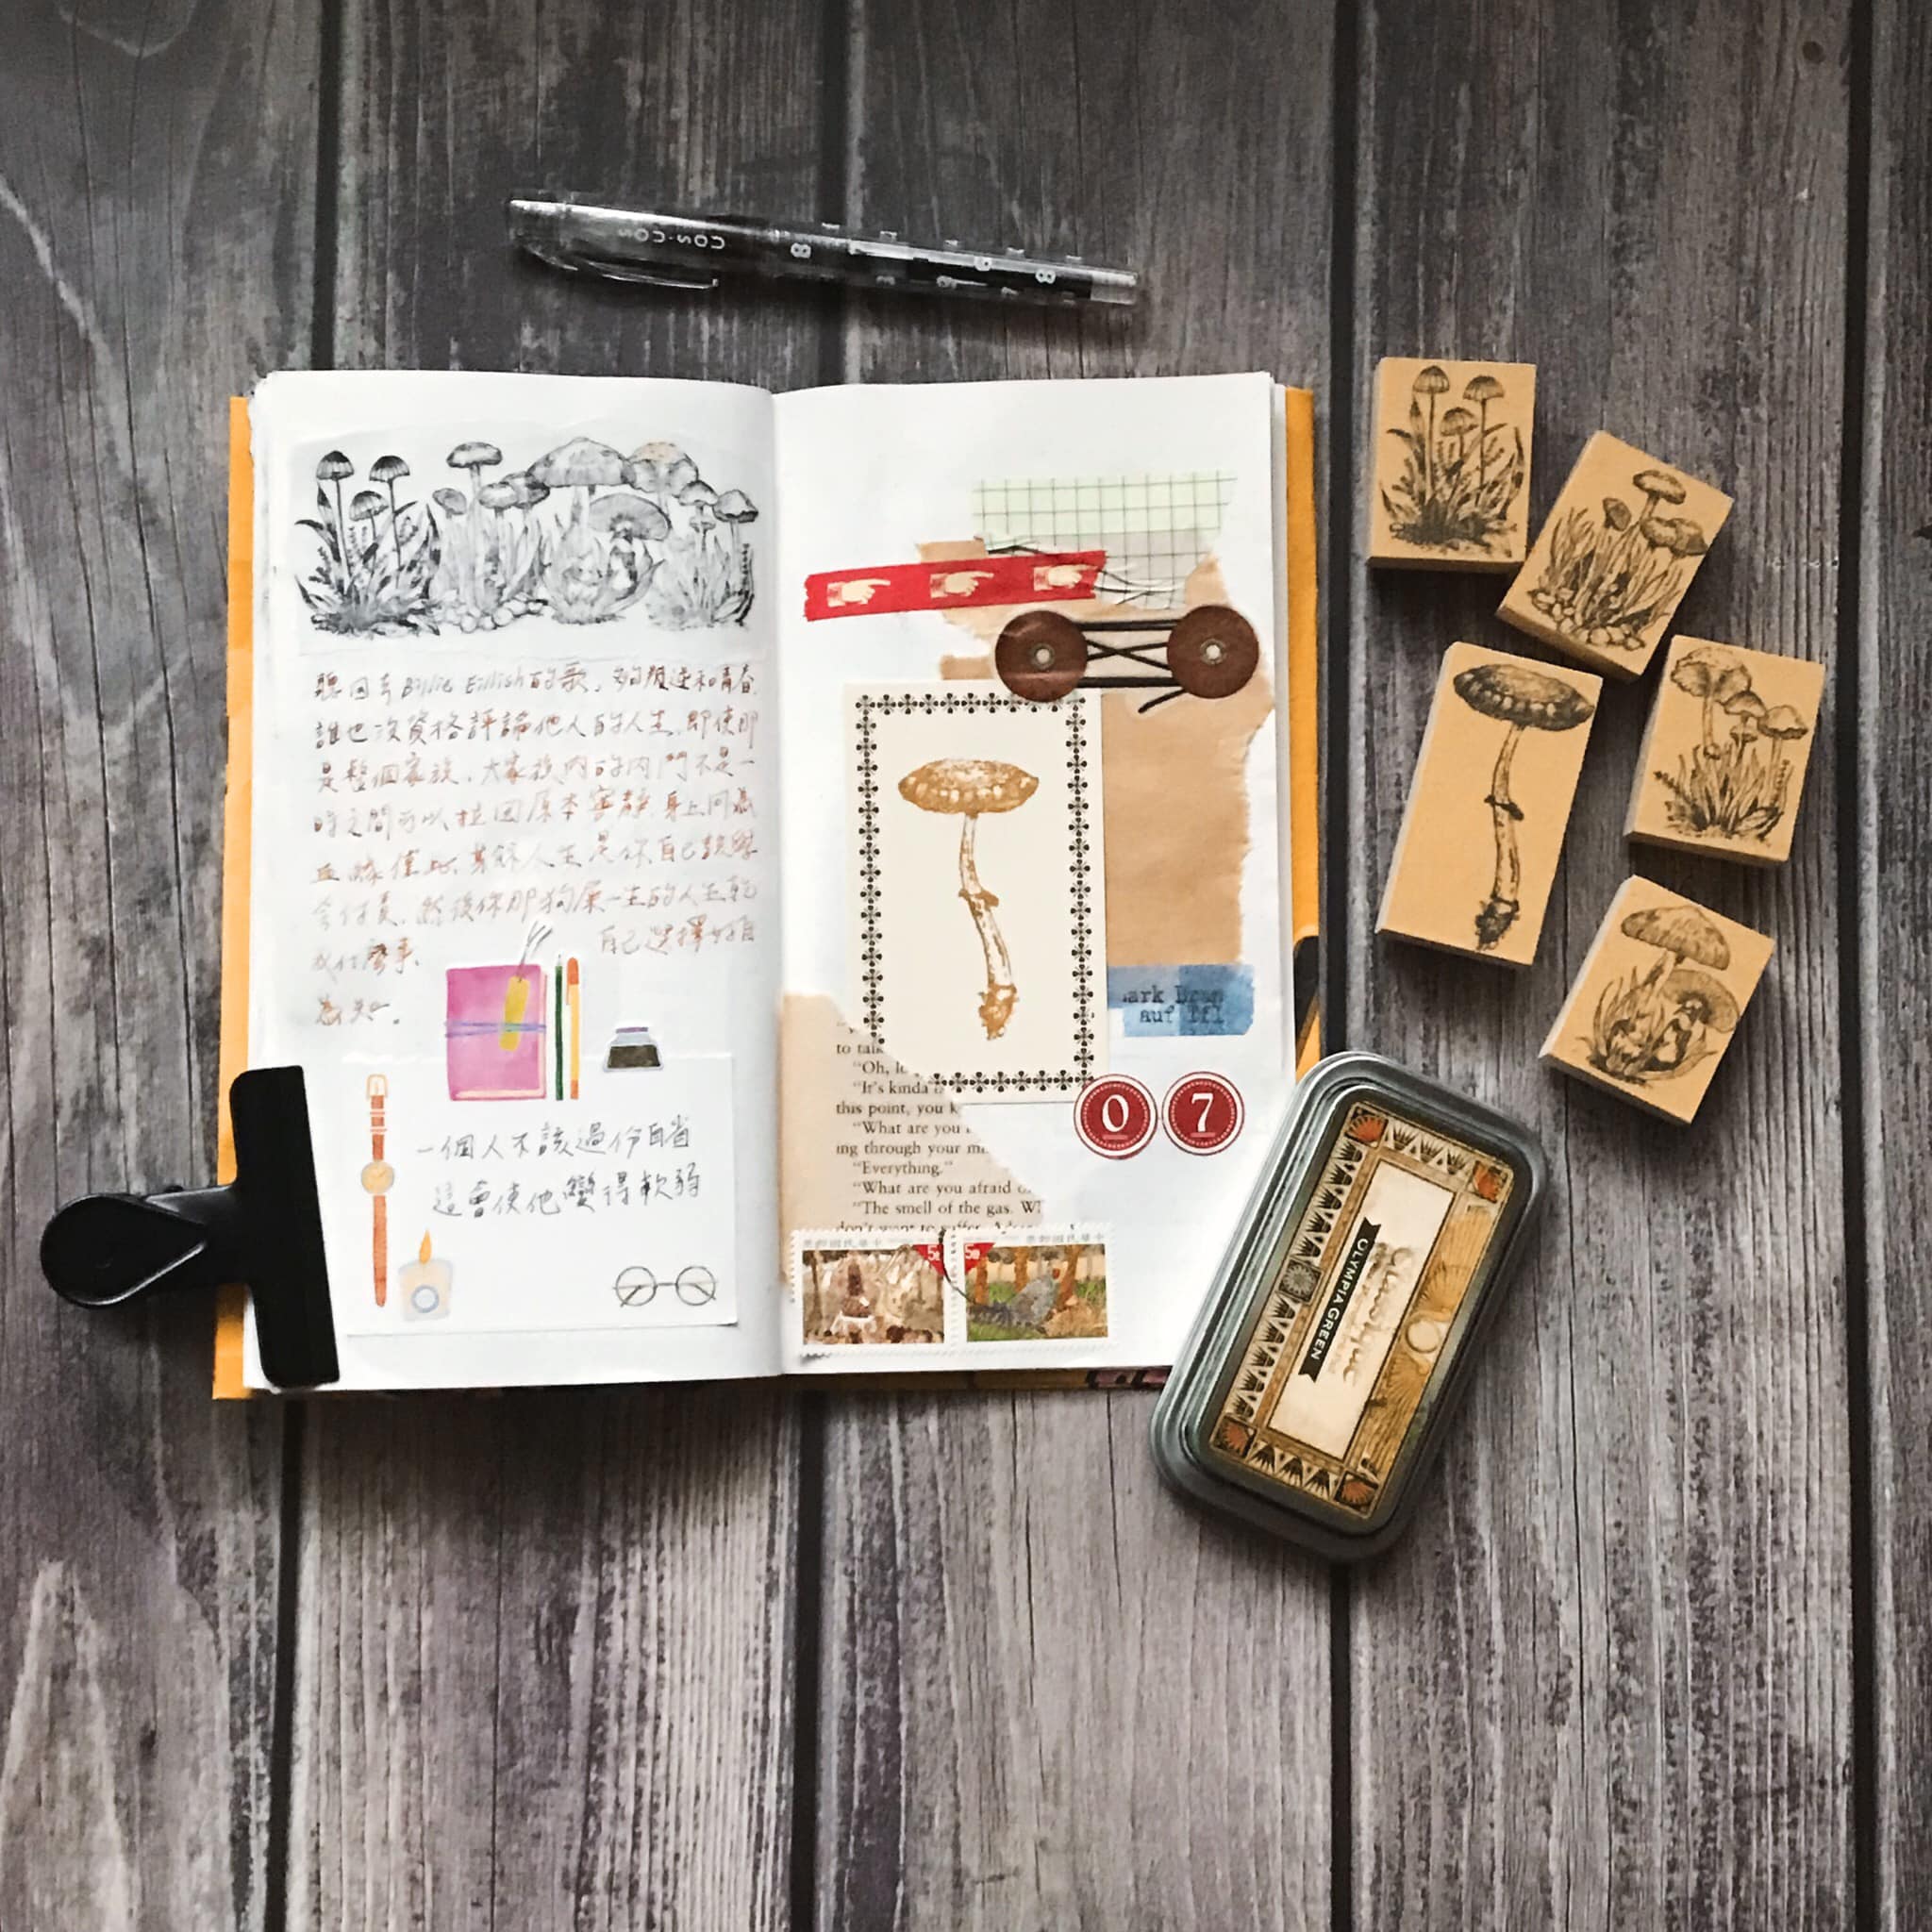 聽回去 Billie Eilish的歌，夠叛逆和青春
誰也沒資格評論他人的人生，即使即
是整個家族，大家族內的內鬥不是一
時之間可以拉回原本寧靜，身上同為
血緣僅此，其餘人生是你自己
會付責，然後你那狗屎一生的人生乾
我什麼事。
自己選擇好自
為知。
一個人不該過份自省
這會使他變得軟弱
ark
auf
to talk
"Oh, I
"It's kinda
this point, you k
"What are you
ing through your m
"Everything."
"What are you afraid
"The smell of the gas. W
don't want to suffer.
0 7
中華民國郵票
中華民國郵票
OLYMPIA GREEN